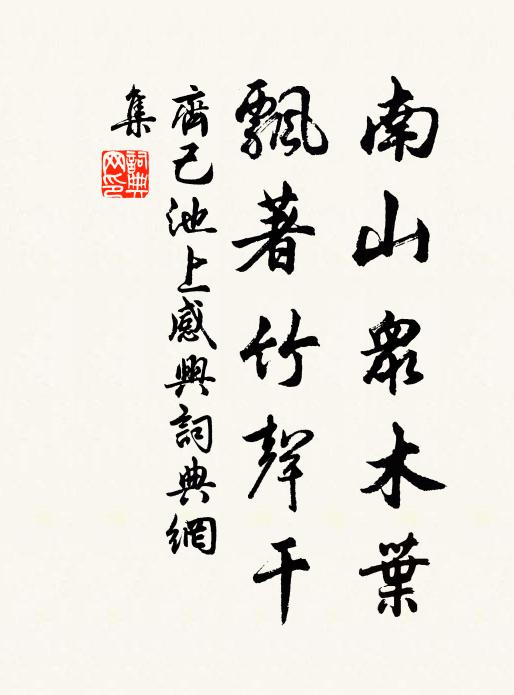 南山眾木葉
飄著竹聲干
齊己池上感興詞典網
集
詞典
网印